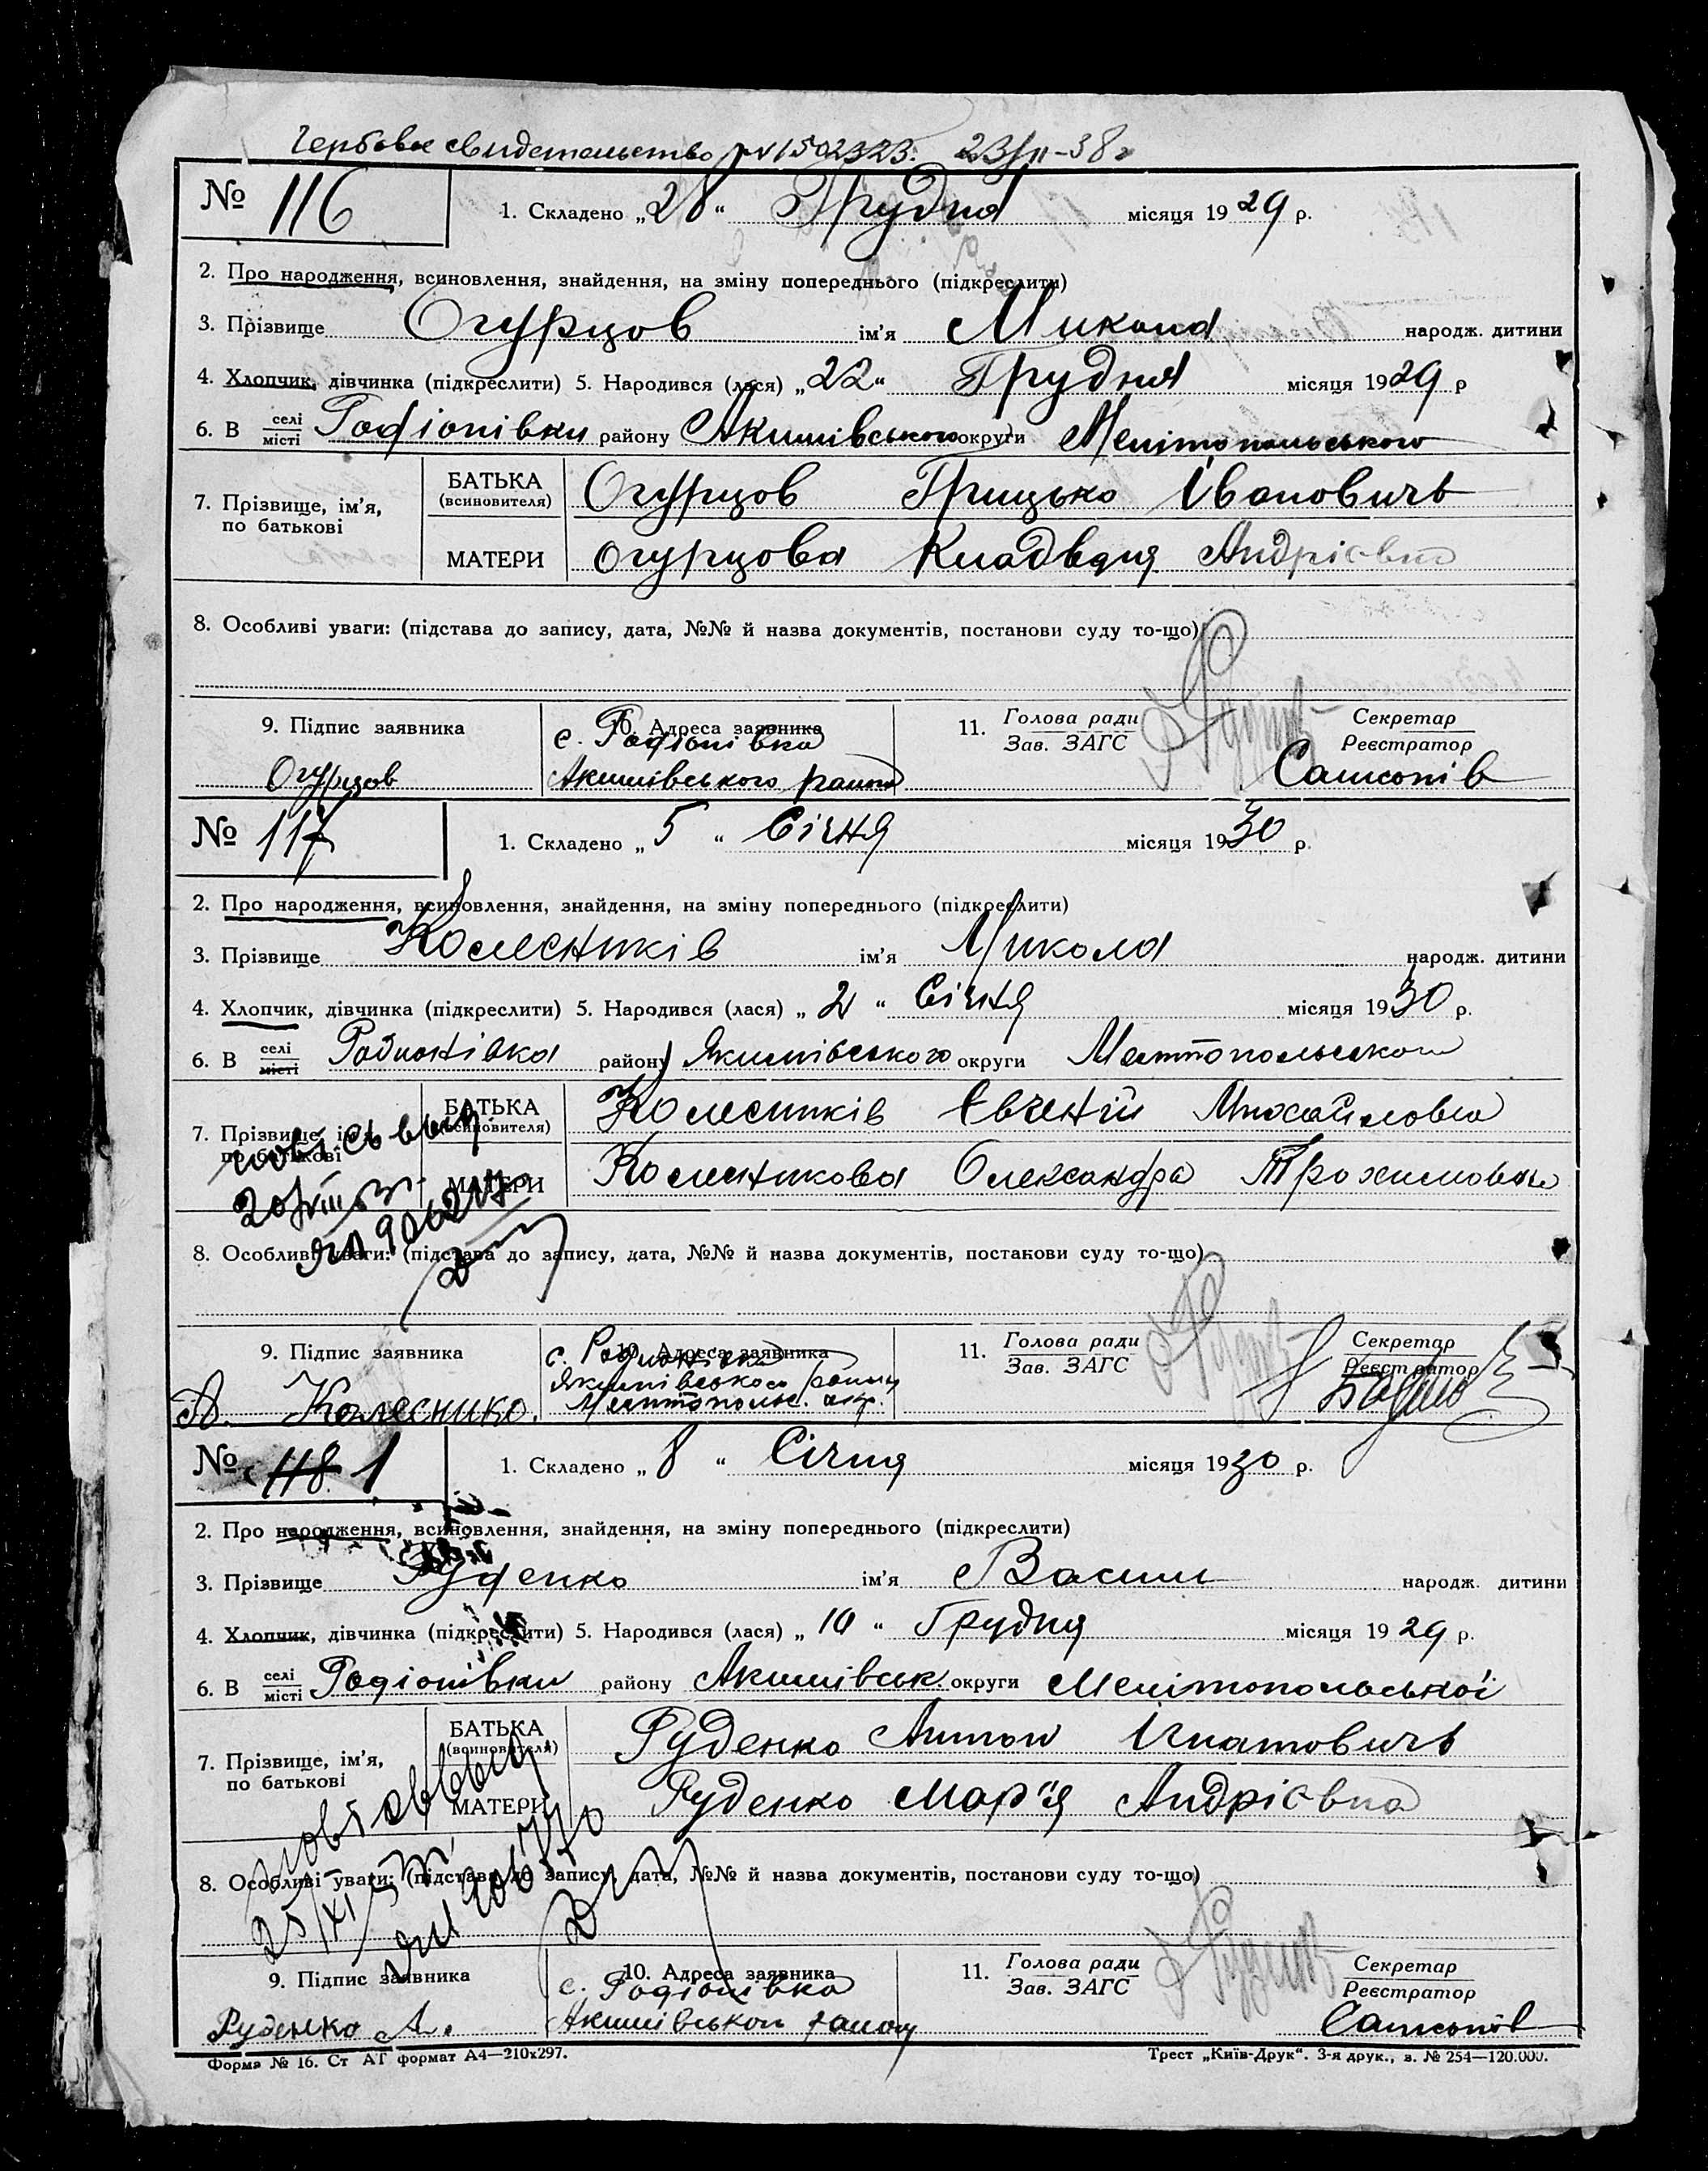 Гербовое свидетельство № 1502323. 23/II-38г
№ 116 1. Складено „28“ Грудня місяця 1929 р.
2. Про народження, всиновлення, знайдення, на зміну попереднього (підкреслити)
3. Прізвище Огурцов ім'я Микола народж. дитини
4. Хлопчик, дівчинка (підкреслити) 5. Народився (лася) „22“ Грудня місяця 1929 р
6. В селі місті Родіонівки району Акимівського округи Мелітопольського
7. Прізвище, ім'я, по батькові БАТЬКА (всиновителя) Огурцов Грицько Івановичь
МАТЕРИ Огурцова Кладвдия Андрієвна
8. Особливі уваги: (підстава до запису, дата, №№ й назва документів, постанови суду то-що)
9. Підпис заявника 10. Адреса заявника 11. Голова ради Зав. ЗАГС Секретар Реєстратор
Огурцов с. Родіонівка Акимівського району Самсонів
№ 117 1. Складено „5“ Січня місяця 1930 р.
2. Про народження, всиновлення, знайдення, на зміну попереднього (підкреслити)
3. Прізвище Колесників ім'я Микола народж. дитини
4. Хлопчик, дівчинка (підкреслити) 5. Народився (лася) „2“ Січня місяця 1930 р.
6. В селі місті Родионівка району Якимівського округи Мелітопольського
7. Прізвище, ім'я, по батькові БАТЬКА (всиновителя) Колесників Евгений Михайлович
МАТЕРИ Колесникова Олександра Трохимовна
8. Особливі уваги: (підстава до запису, дата, №№ й назва документів, постанови суду то-що)
9. Підпис заявника 10. Адреса заявника 11. Голова ради Зав. ЗАГС Секретар Реєстратор
с. Родионівка
Якимівського району
А. Колеснико. Мелітопольс. окр.
№ 118 1 1. Складено „8“ Січня місяця 1930 р.
2. Про народження, всиновлення, знайдення, на зміну попереднього (підкреслити)
3. Прізвище Руденко ім'я Васили народж. дитини
4. Хлопчик, дівчинка (підкреслити) 5. Народився (лася) „10“ Грудня місяця 1929 р.
6. В селі місті Родіонівки району Акимівськ. округи Мелітопольської
7. Прізвище, ім'я, по батькові БАТЬКА (всиновителя) Руденко Антон Игнатовичь
МАТЕРИ Руденко Мар'я Андрієвна
8. Особливі уваги: (підстава до запису, дата, №№ й назва документів, постанови суду то-що)
9. Підпис заявника 10. Адреса заявника 11. Голова ради Зав. ЗАГС Секретар Реєстратор
с. Родіонівка
Руденко А. Акимівського району Самсонів
Форма № 16. Ст АТ формат А4—210х297. Трест „Київ-Друк“. 3-я друк., з. № 254—120.000.